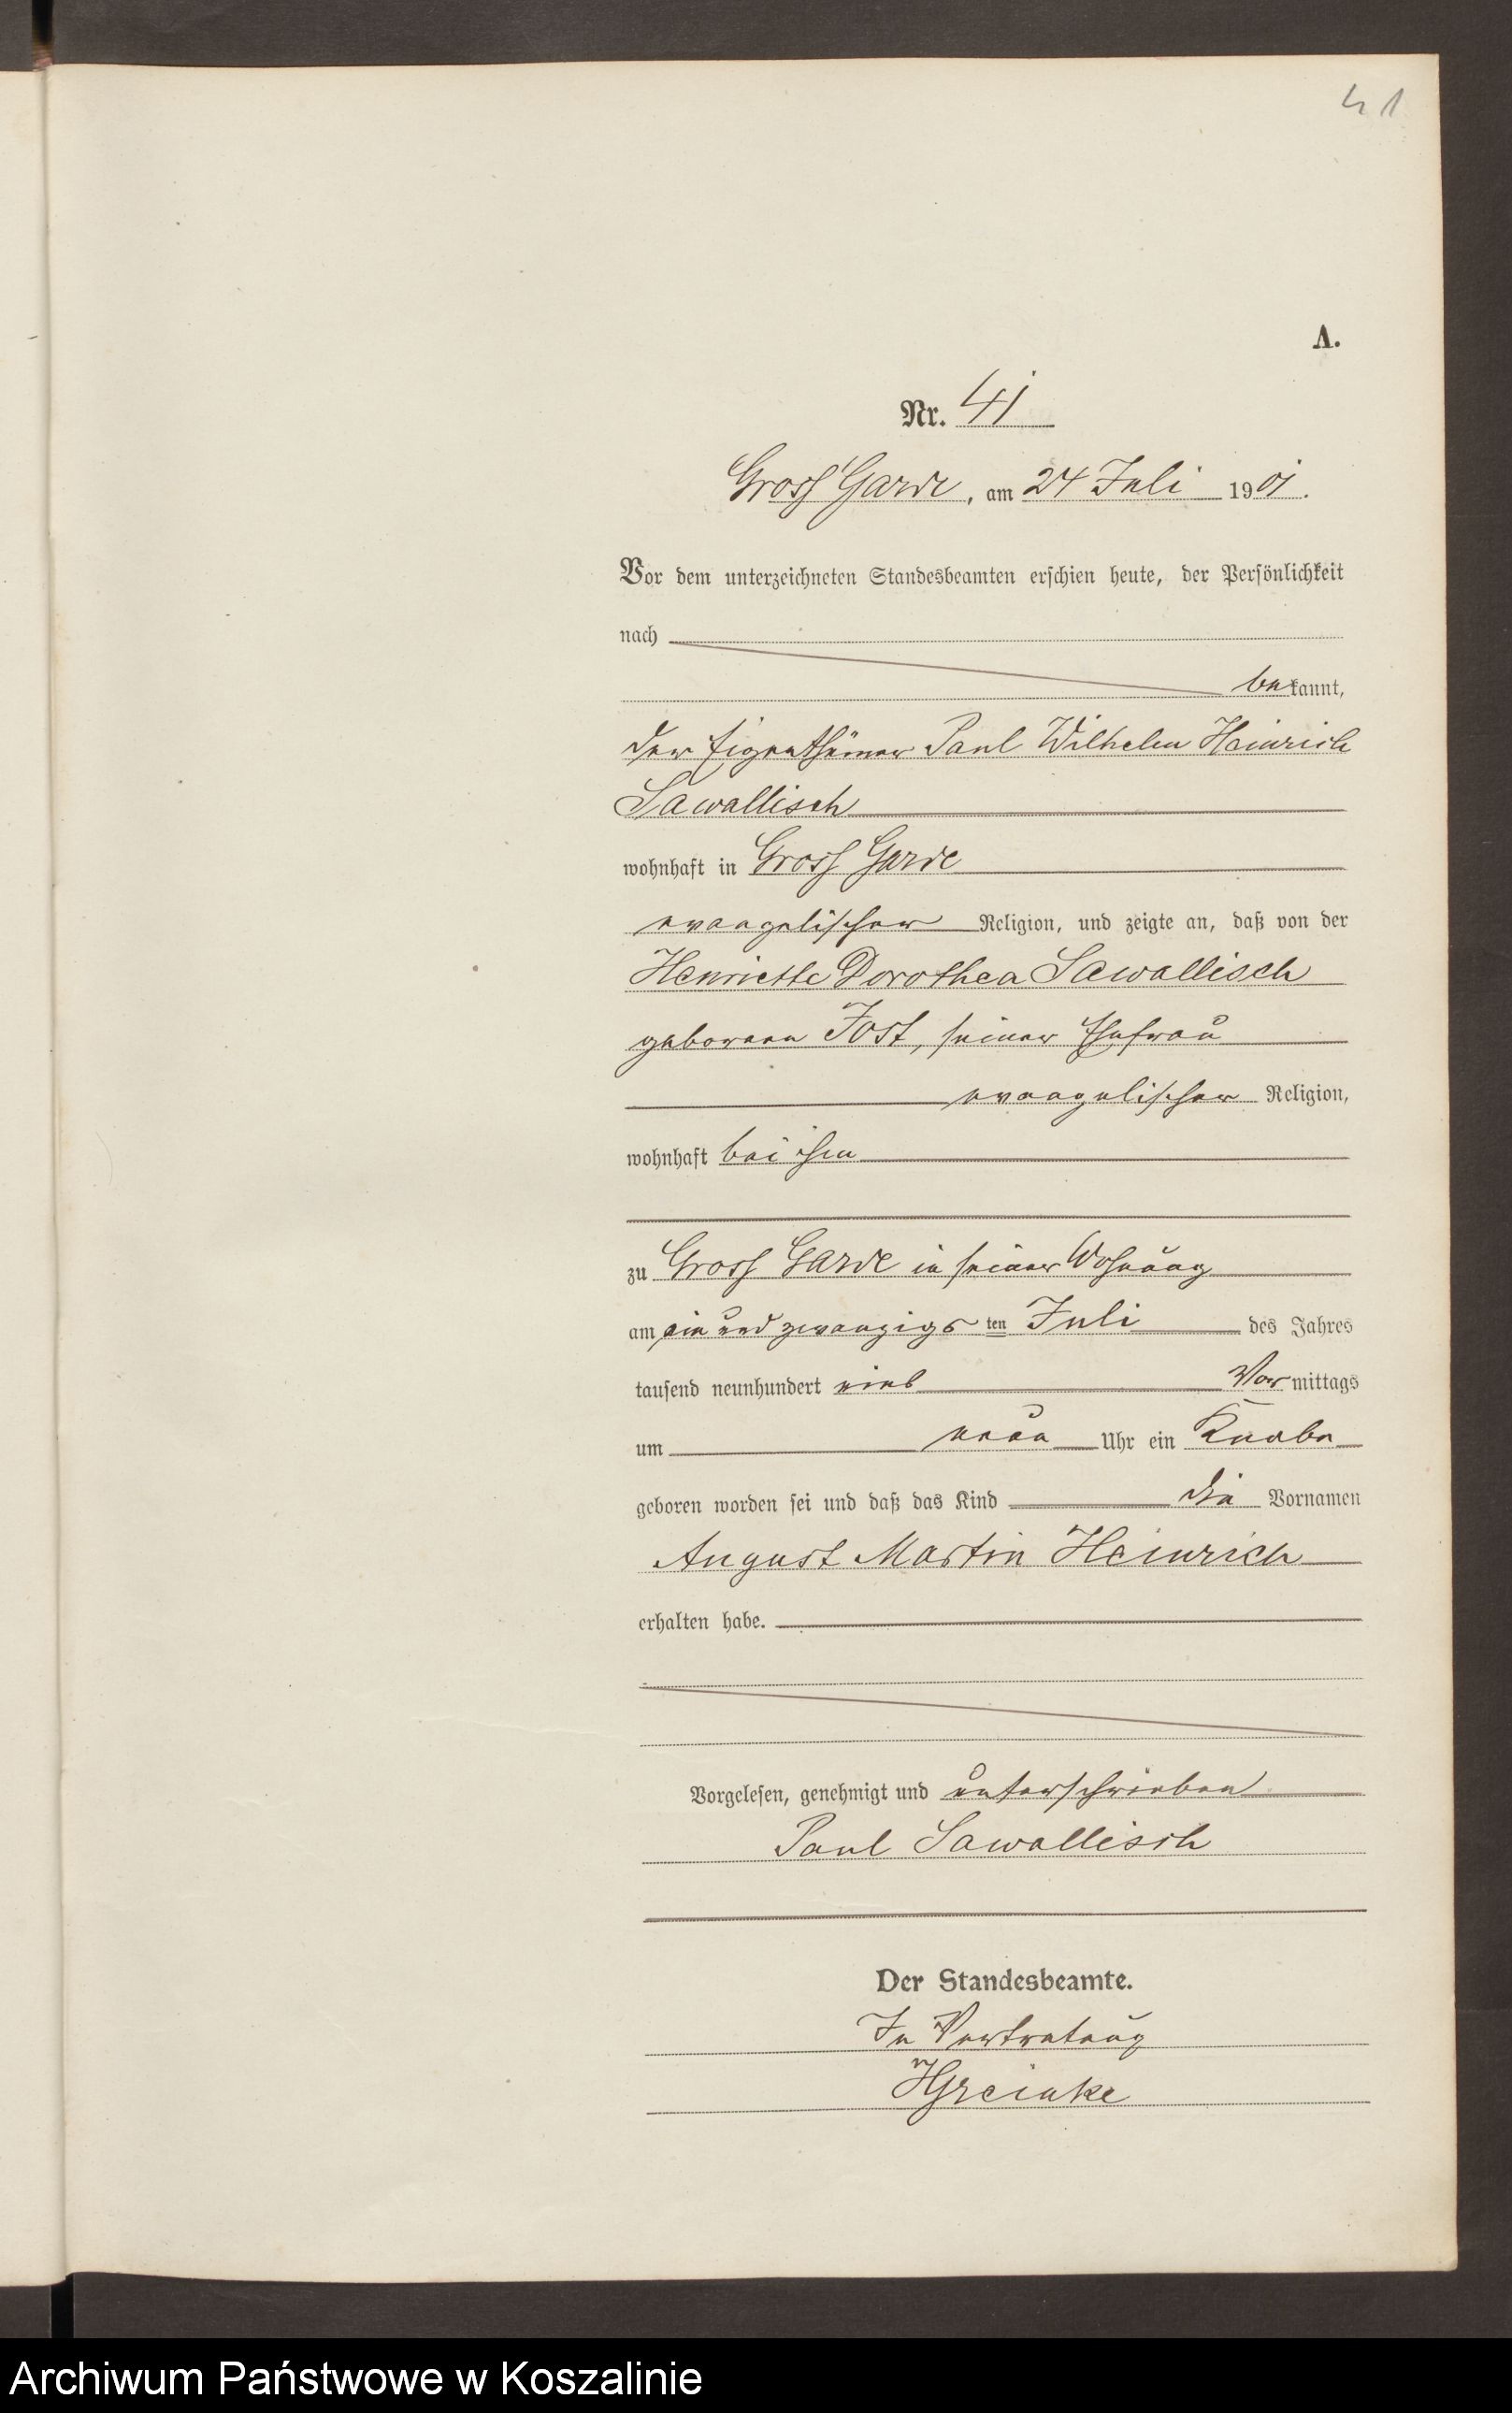 41
A.
Nr. 41
Gross Garde, am 24 Juli 1901.
Vor dem unterzeichneten Standesbeamten erschien heute, der Persönlichkeit
nach
bekannt,
der Eigenthümer Paul Wilhelm Heinrich
Sawallisch
wohnhaft in Gross Garde
evangelischer Religion, und zeigte an, daß von der
Henriette Dorothea Sawallisch
geborenen Jost, seiner Ehefrau
evangelischer Religion,
wohnhaft bei ihm
zu Gross Garde in seiner Wohnung
am ein und zwanzigsten Juli des Jahres
tausend neunhundert eins Vormittags
um neun Uhr ein Knabe
geboren worden sei und daß das Kind die Vornamen
August Martin Heinrich
erhalten habe.
Vorgelesen, genehmigt und unterschrieben
Paul Sawallisch
Der Standesbeamte.
In Vertretung
Archiwum Państwowe w Koszalinie